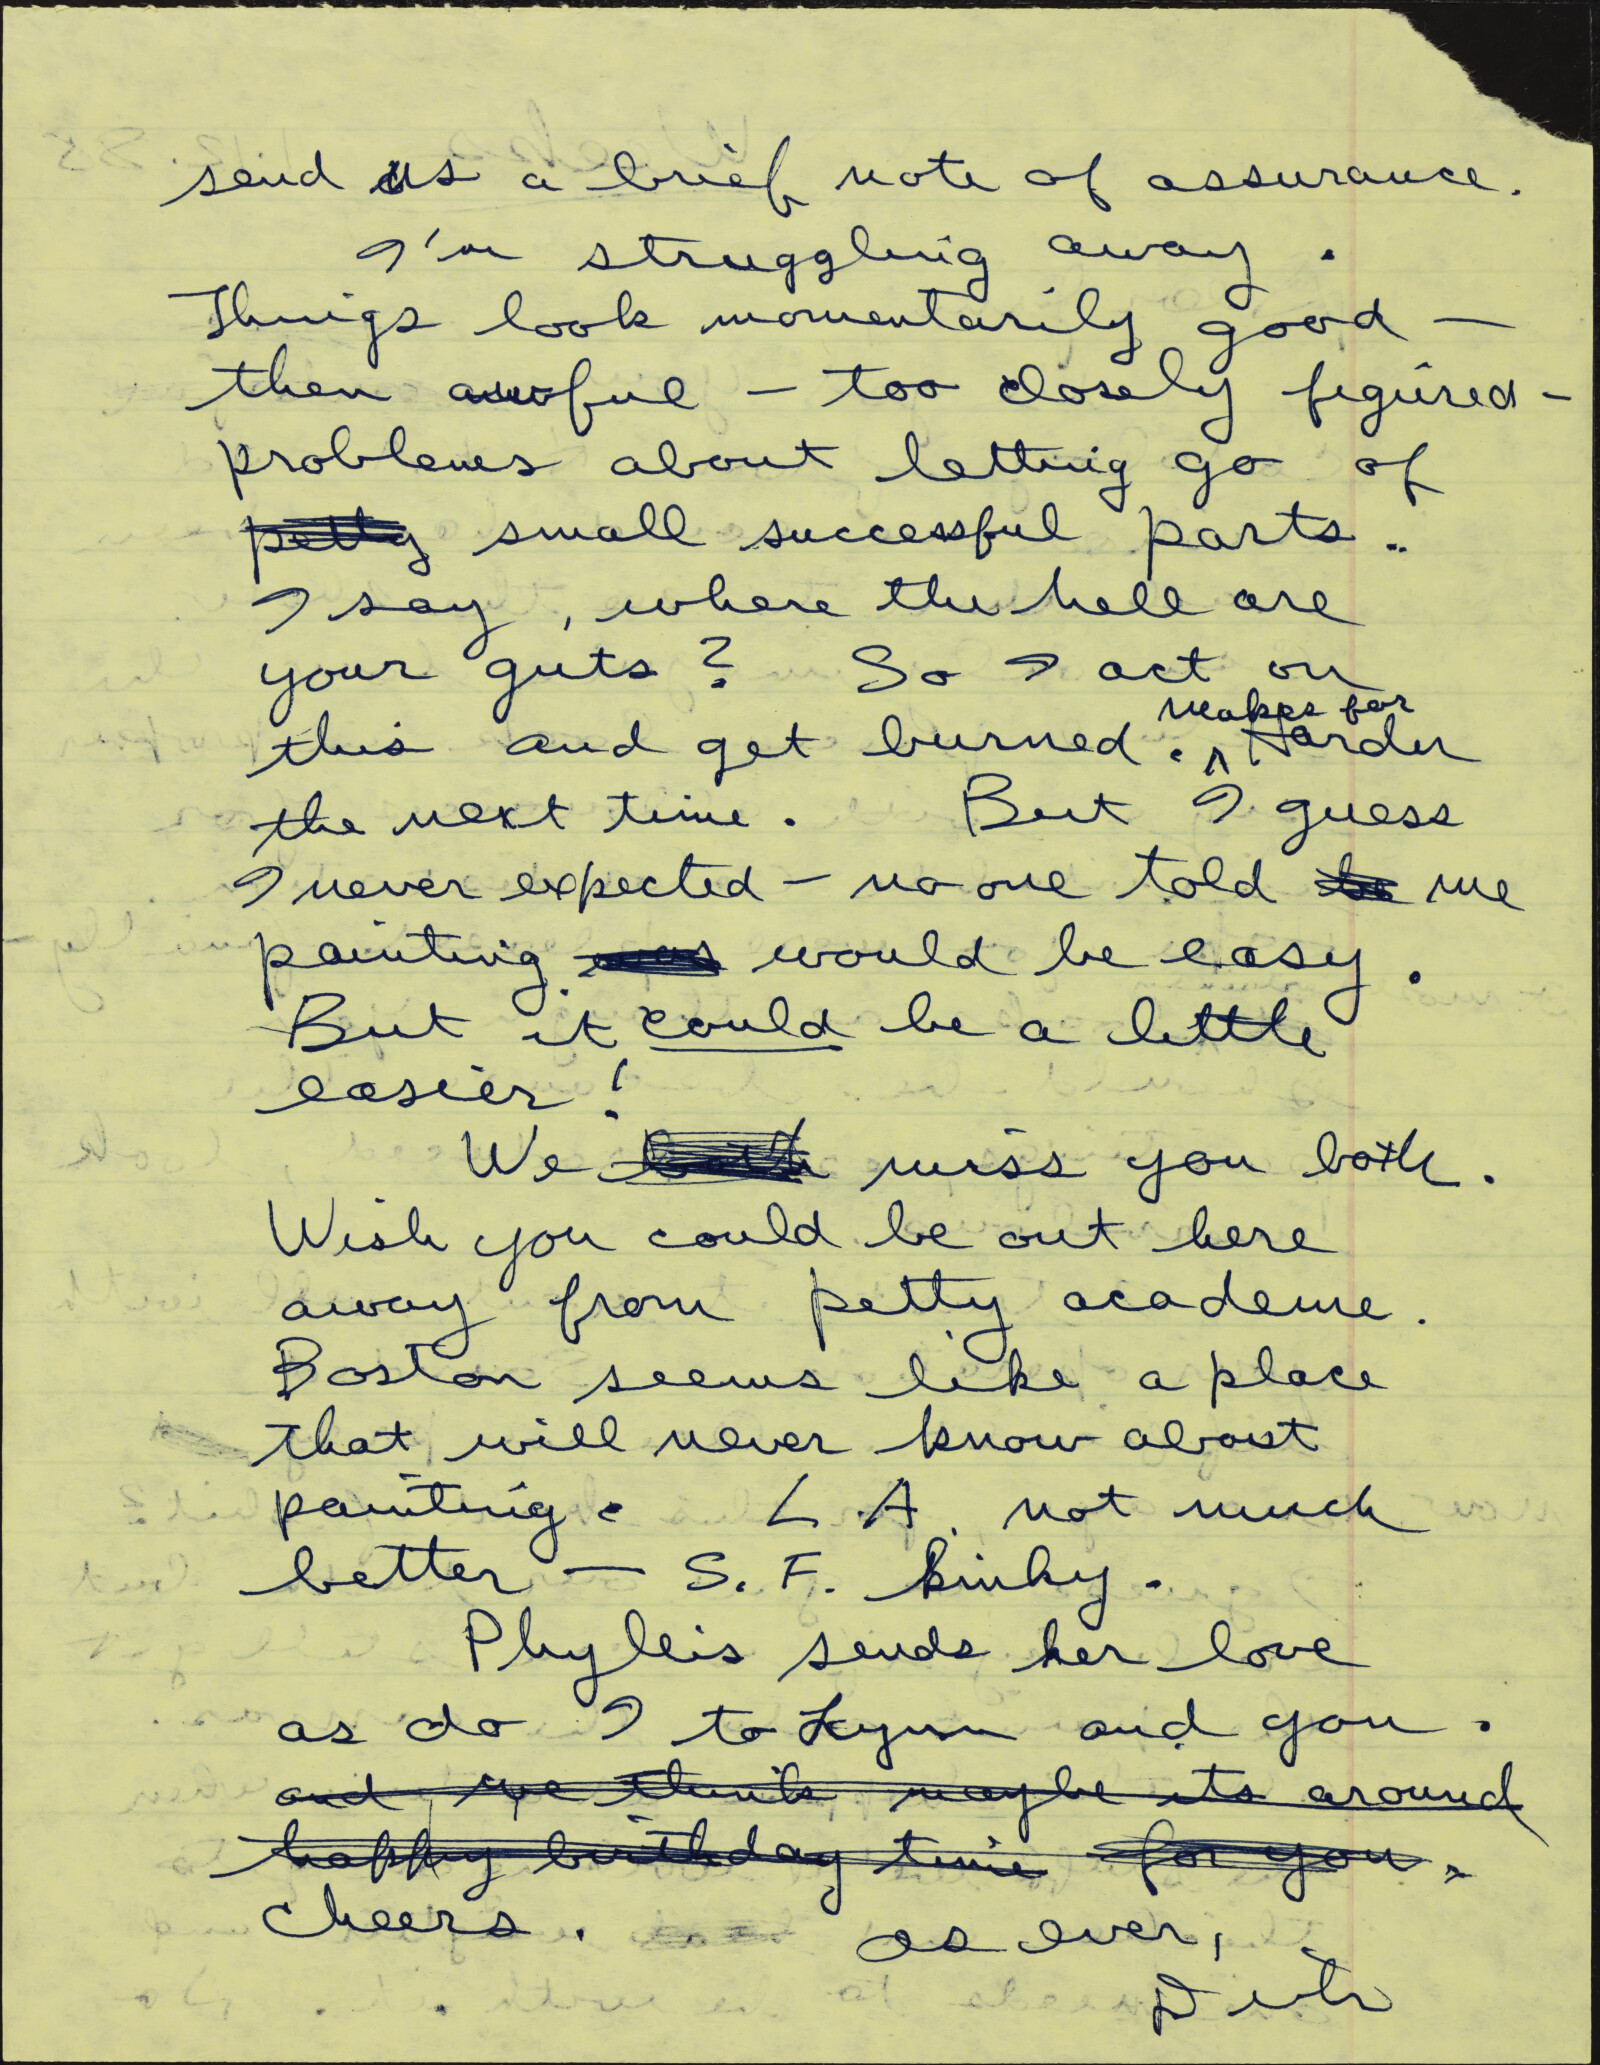 send us a brief note of assurance.
I'm struggling away.
Things look momentarily good —
then awful — too closely figured -
problems about letting go of
petty small successful parts..
I say, where the hell are
your guts? So I act on
this and get burned. makes for Harder
the next time. But I guess
I never expected — no one told me
painting would be easy.
But it could be a little
easier!
We both miss you both.
Wish you could be out here
away from petty academe.
Boston seems like a place
that will never know about
painting. L.A. not much
better — S.F. kinky.
Phyllis sends her love
as do I to Lynn and you.
and we think maybe its around
happy birthday time for you.
Cheers. as ever,
Dick